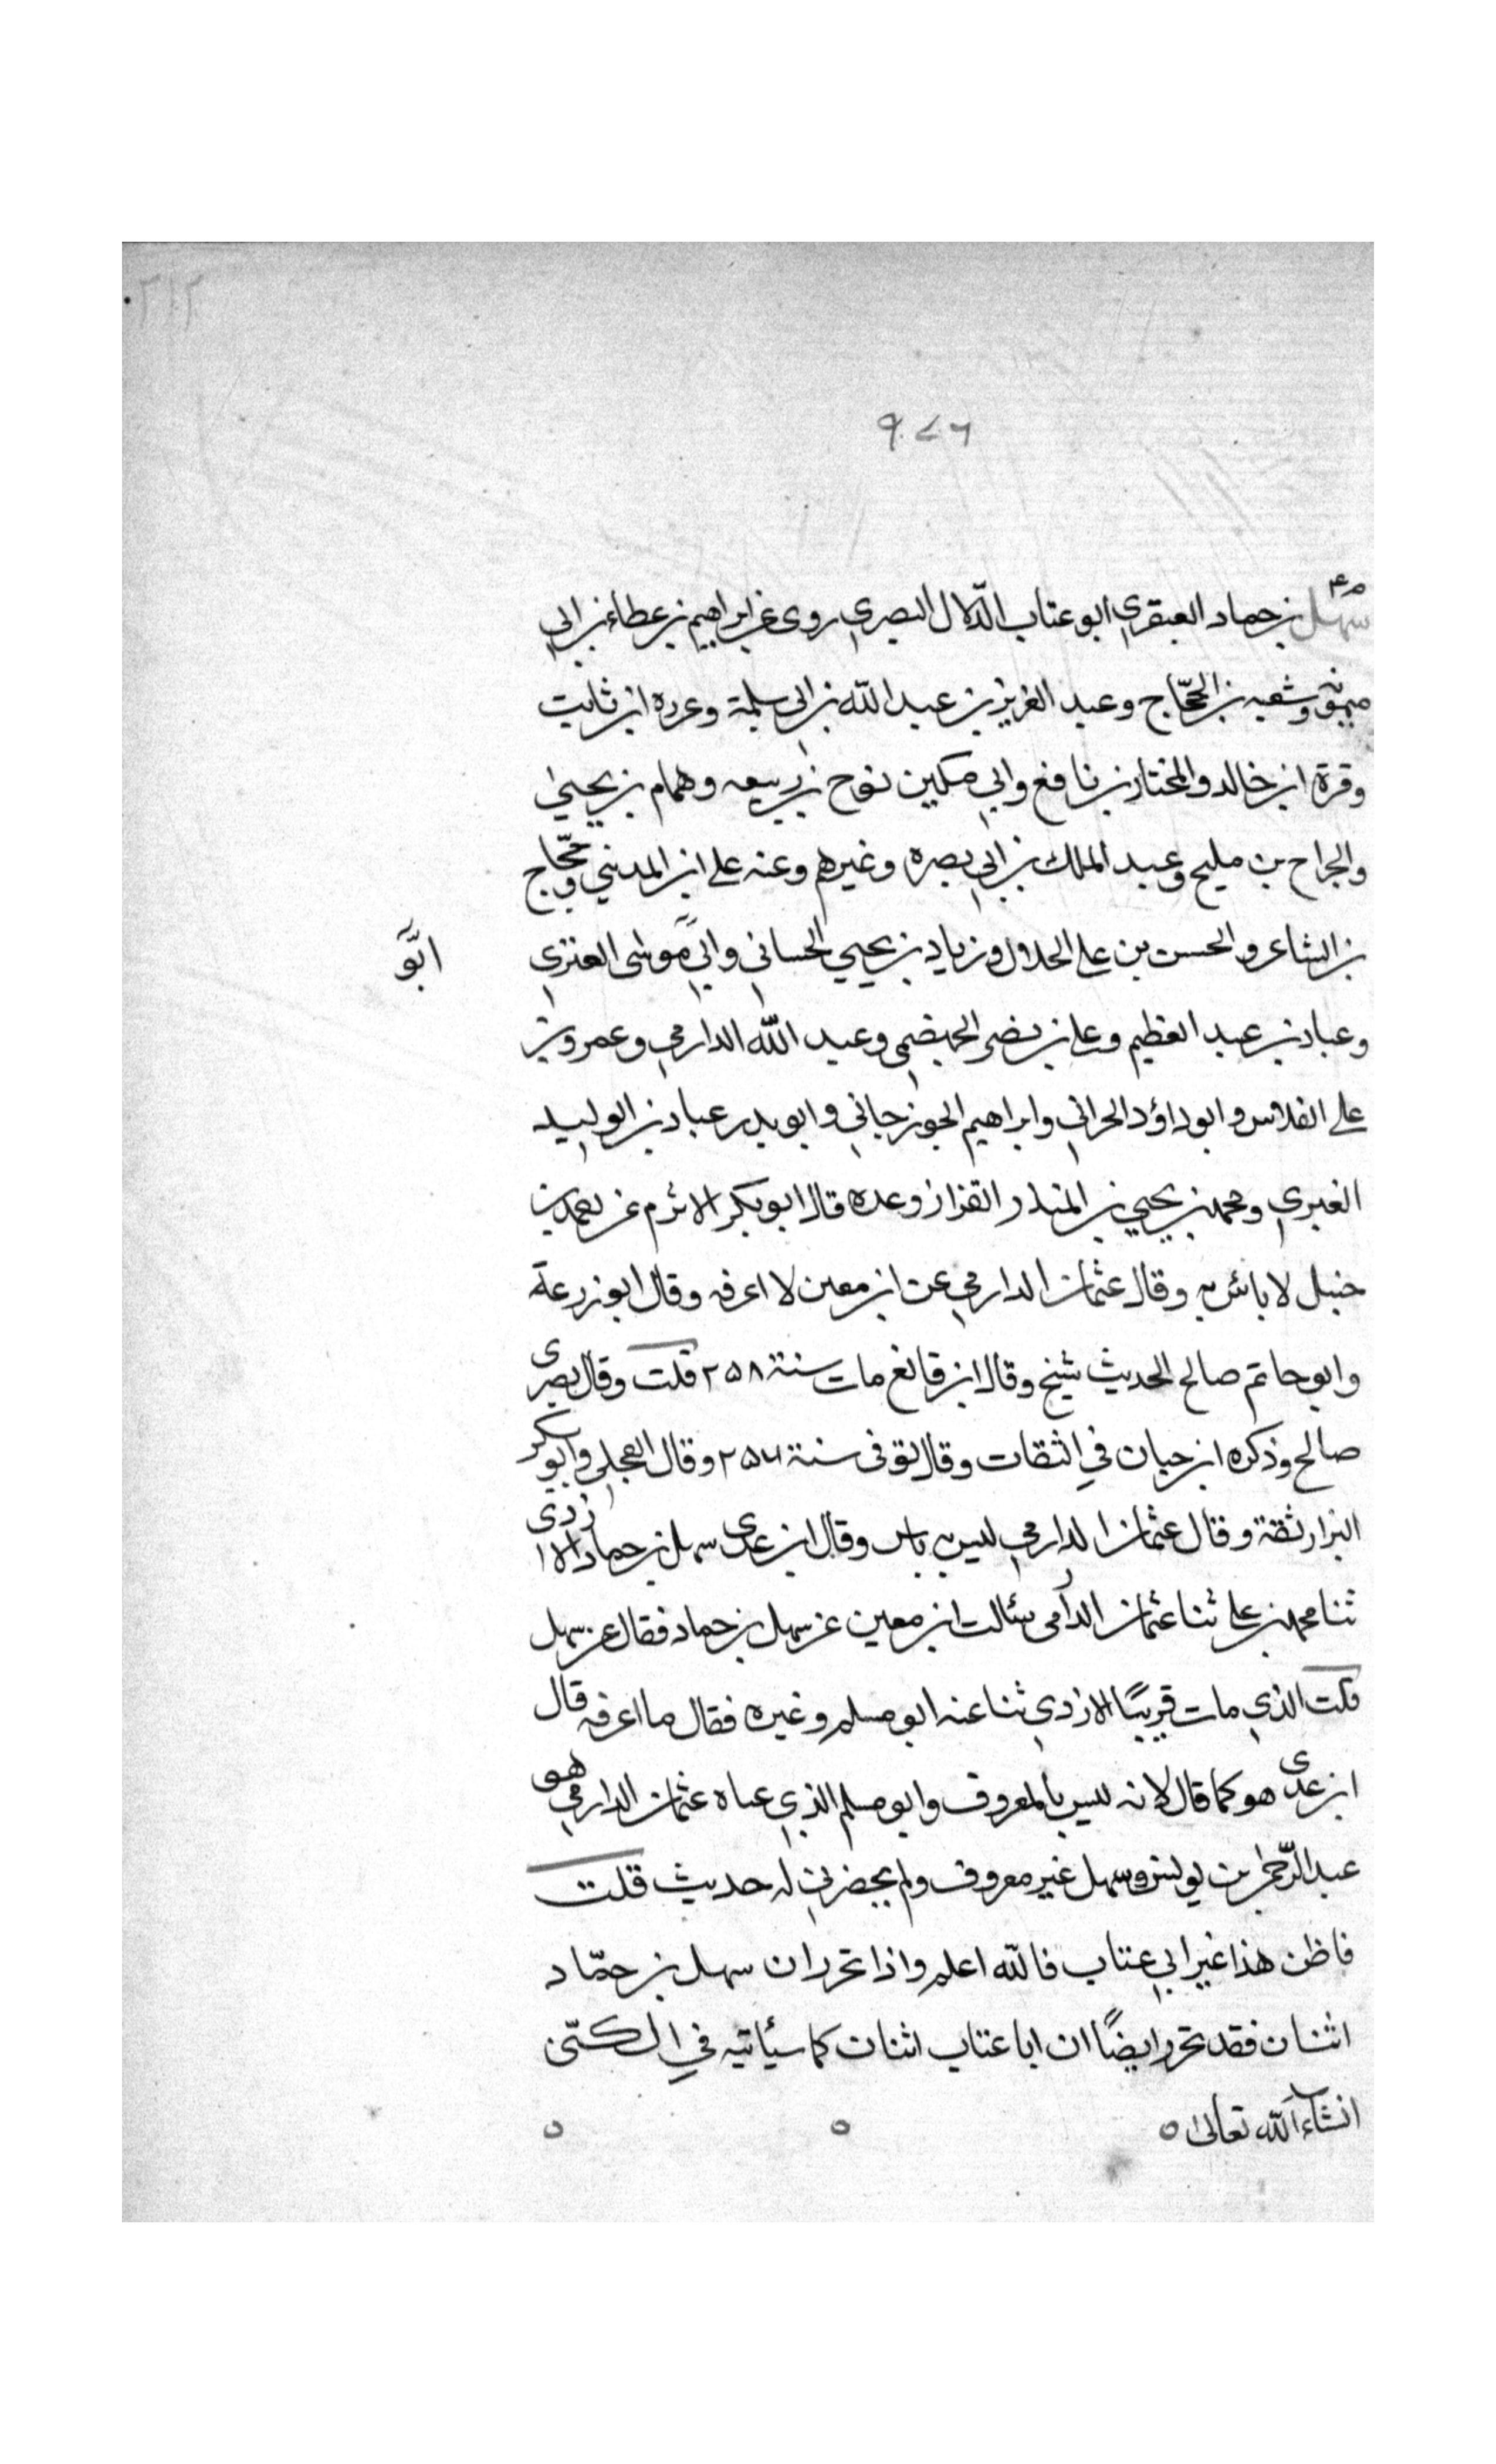 ٩٧٦
م ٤
سهل بن حماد العبقري ابو عتاب الدّلال البصري روى عن ابراهيم بن عطاء بن ابي
ميمونة وشعبه بن الحجّاج وعبد العزيز بن عبد الله بن ابي سلمة وعزره ابن ثابت
وقرة ابن خالد والمختار بن نافع وابي مكين نوح بن ربيعه وهمام بن يحيىٰ
والجراح بن مليح وعبد الملك بن ابي بصره وغيرهم وعنه علي ابن المديني وحجّاج
بن الشاعر والحسن بن علي الحلال وزياد بن يحيي الحساني وابي موسى العنزي
ابو
وعباد بن عبد العظيم وعلي بن نصر الجهضمي وعبد الله الدارمي وعمرو بن
علي الفلاس وابو داؤد الحراني وابراهيم الجوزجاني وابو بدر عباد بن الوليد
الغبري ومحمد بن يحيي بن المنذر القزاز وعده قال ابو بكر الاثرم عن احمد بن
حنبل لا بائس به وقال عثمان الدارمي عن ابن معين لا اعرفه وقال ابو زرعة
وابو حاتم صالح الحديث شيخ وقال ابن قانع مات سنة ٢٥٨ قلت وقال بصرى
صالح وذكره ابن حبان في الثقات وقال توفى سنة ٢٥٤ وقال العجلي وابو بكر
البزار ثقة وقال عثمان الدارمي ليس به باس وقال ابن عدى سهل بن حماد الازدى
ثنا محمد بن علي ثنا عثمان الدارمى سئالت ابن معين عن سهل بن حماد فقال عن سهل
قلت الذي مات قريبًا الازدي ثنا عنه ابو مسلم وغيره فقال ما اعرفه قال
ابن عدى هو كما قال لانه ليس بالمعروف وابو مسلم الذي عناه عثمان الدارمي هو
عبد الرّحمٰن بن يونس وسهل غير معروف ولم يحضرني له حديث قلت
فاظن هذا غير ابي عتاب فالله اعلم واذا تحرر ان سهل بن حمّاد
اثنان فقد تحرر ايضًا ان ابا عتاب اثنان كما سيئاتيه في الكنى
انشاء الله تعالىٰ ٥ ٥ ٥